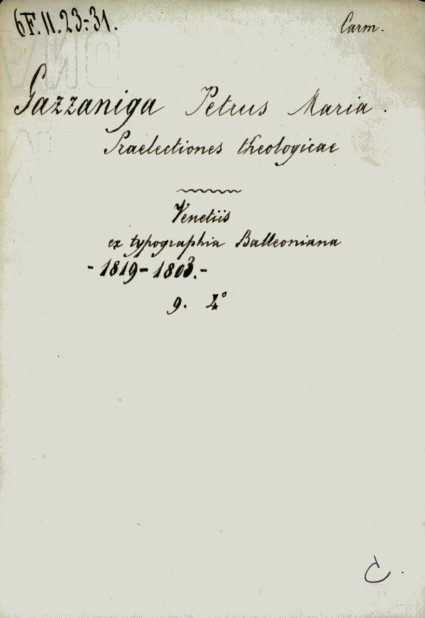 6F.II.23-31.
Carm.
Gazzaniga Petrus Maria.
Praelectiones theologicae
Venetiis
ex typographia Balleoniana
- 1819-1803.-
9. 4°
C.